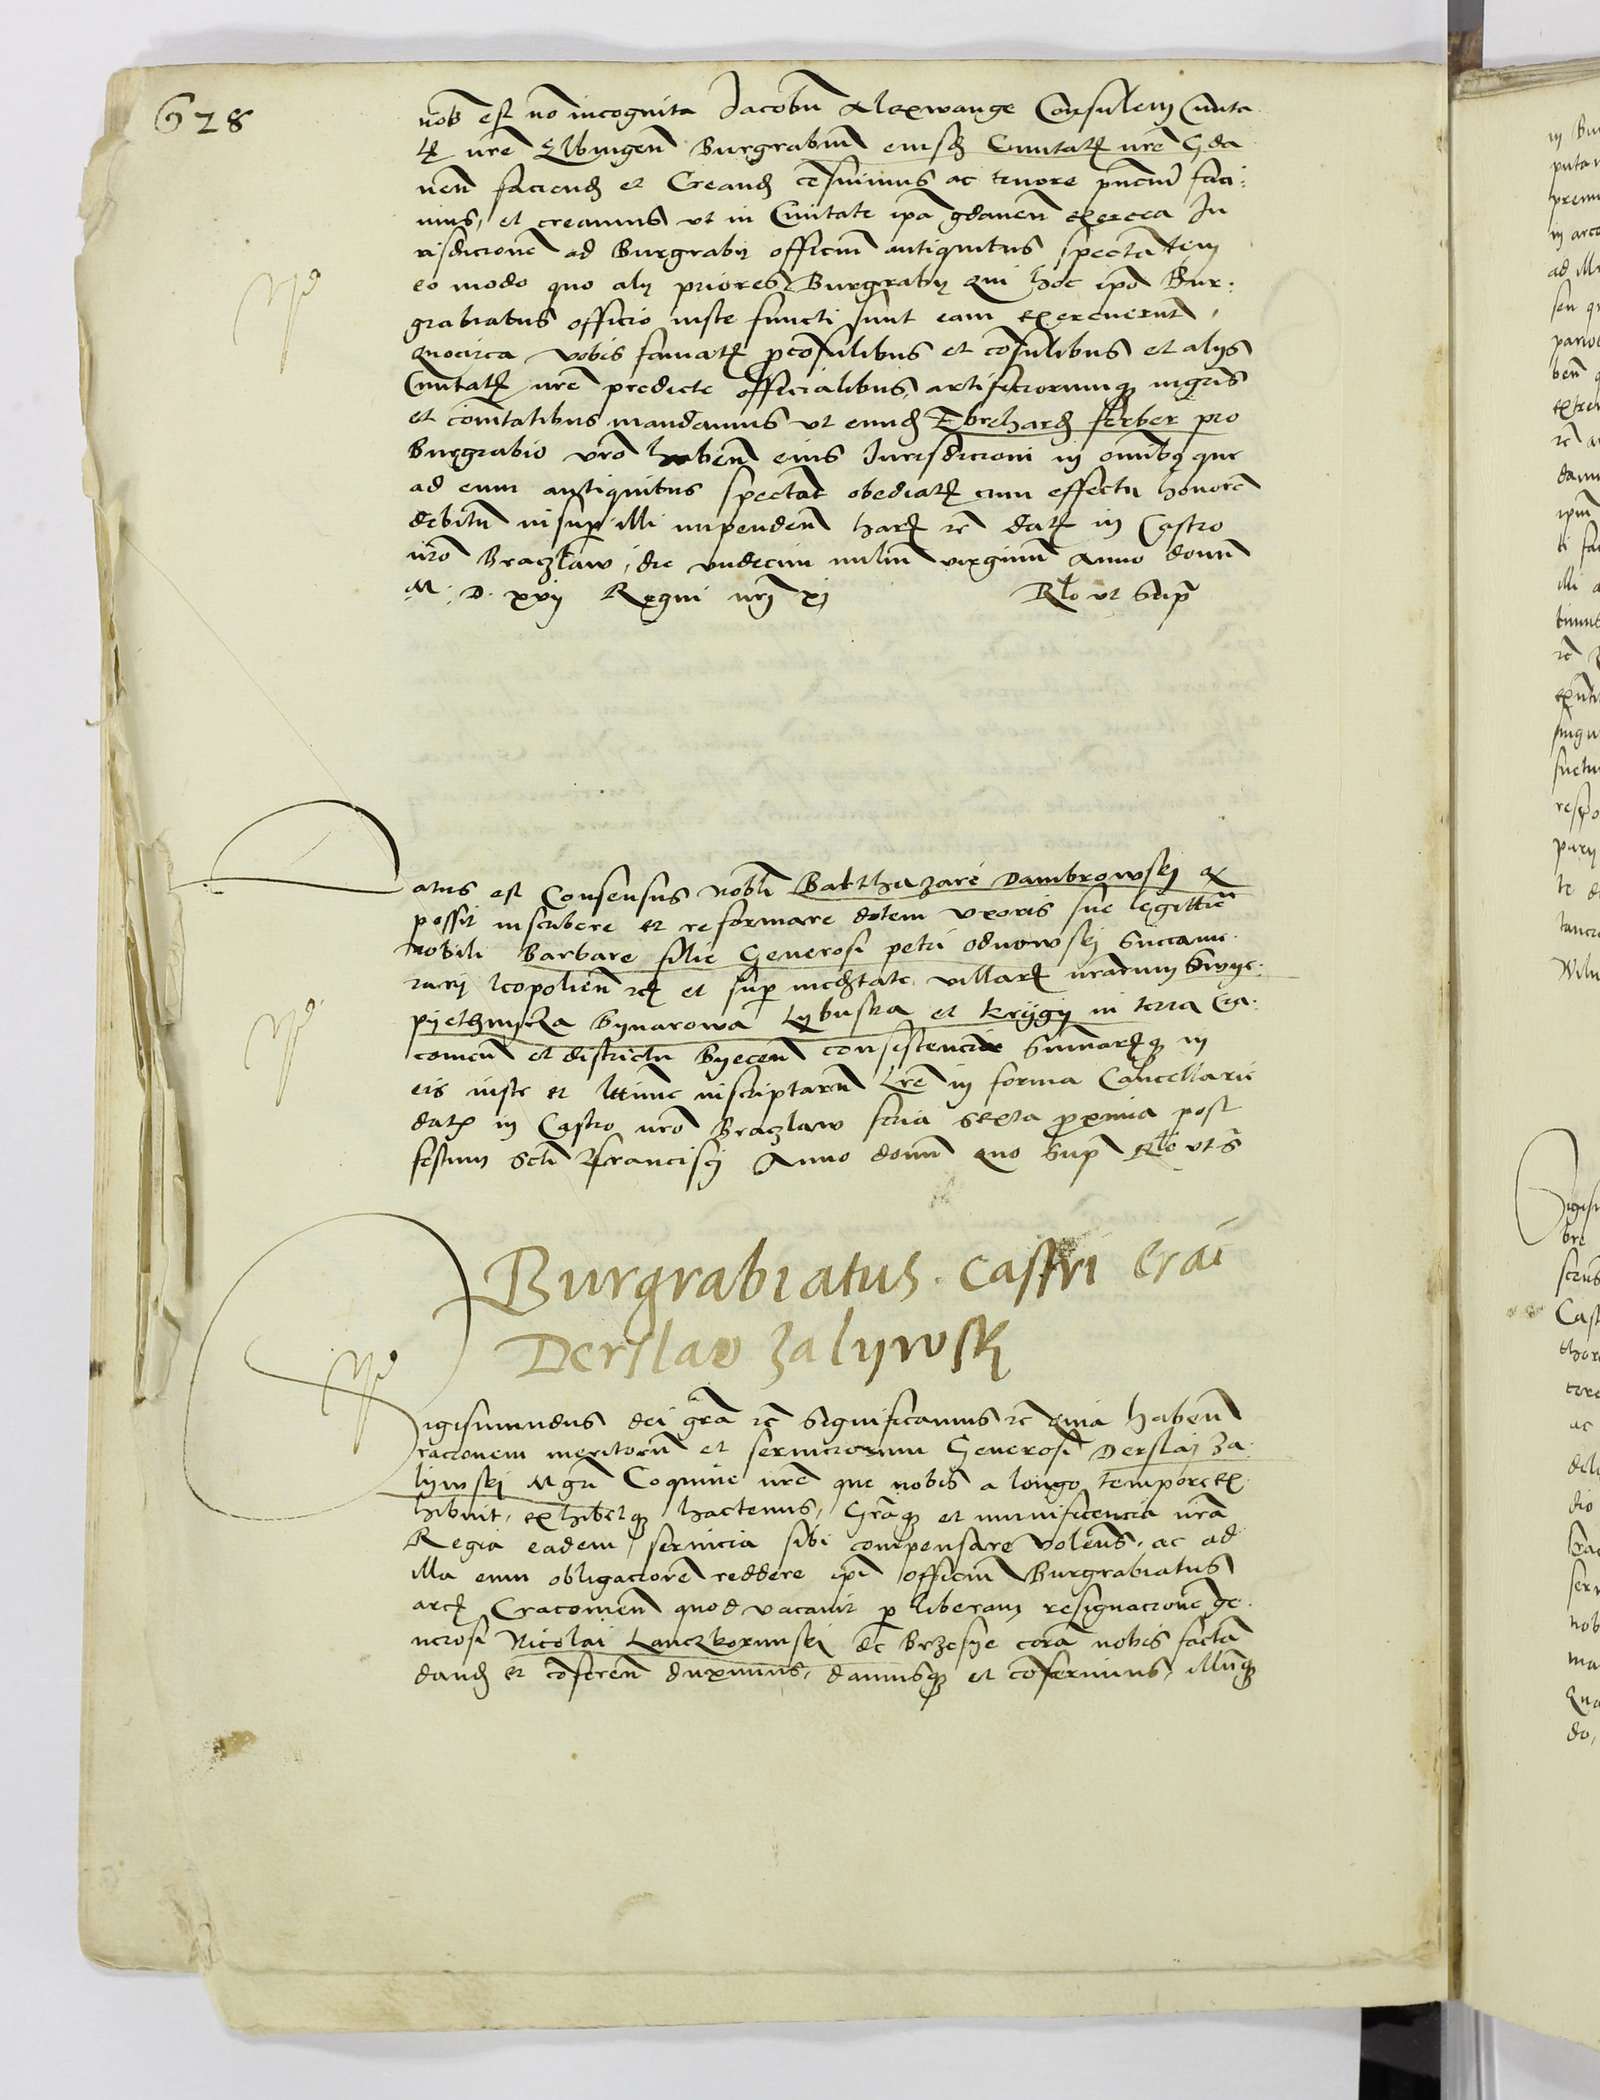 628
nob est no incognita Jacobu Alexwange Consulem Civita
tis nre Elbingen Burgrabiu eiusd Civitatis nre Gda
nen faciend et Creand cesuimus ac tenore pntiu faci:
mus, et creamus ut in Civitate ipa gdanen exercea Ju
risdicione ad Burgrabij officiu antiquitus spectatem
eo modo quo alij priores Burgrabij qui hoc ipo Bur:
grabiatus officio iuste functi sunt eam exercuerut,
quocirca vobis famatis pcosulibus et cosulibus et alijs
Civitatis nre predicte officialibus, artificiorumq mgris
et comitatibus mandamus ut eund Ebrehard ferber pro
Burgrabio vro haben eius Jurisdicioni in omnibq que
ad eum antiquitus spectat obediatis cum effectu honore
debitu insup illi impenden harz rc datz in Castro
nro Braczlaw, die undecim miliu virginu Anno domi
M. D. xvij Regni nri xj Rlo ut Supra
atus est Consensus nobli Balthazari Dambrowskj q
possit inscribere et reformare dotem uxoris sue legittie
nobili Barbare filie Generosi petri odnowskj Succame
rarij leopolien rc et sup medietate villarz nrarum Swye:
pyethnycza Bynarowa Lybuska et krijgij in terra Cra.
covien et districtu Byecen consistenciu Summarzq in
eis iuste et lttime inscriptaru Lre in forma Cancellarie
datz in Castro nro Braczlaw feria sexta proxima post
festum Scti Francisci Anno domi quo Sup Rlo ut S
Burgrabiatus Castri Crai
Derslao Zalijwskj
igismundus dei gra rc Significamus rc quia haben
racionem meritoru et serviciorum Generosi Derslaj Za
lijwskj Mgri Coquine nre que nobis a longo tempore ex
hibuit, exhibetq hactenus, Graq et munificencia nra
Regia eadem servicia sibi compensare volens, ac ad
illa eum obligaciore reddere ipi officiu Burgrabiatus
arcis Cracovien quod vacavit p liberam resignacione ge
nerosi Nicolai Lanczkorunskj de Brzesye cora nobis facta
dand et coferen duximus, damusq et coferimus, illuq